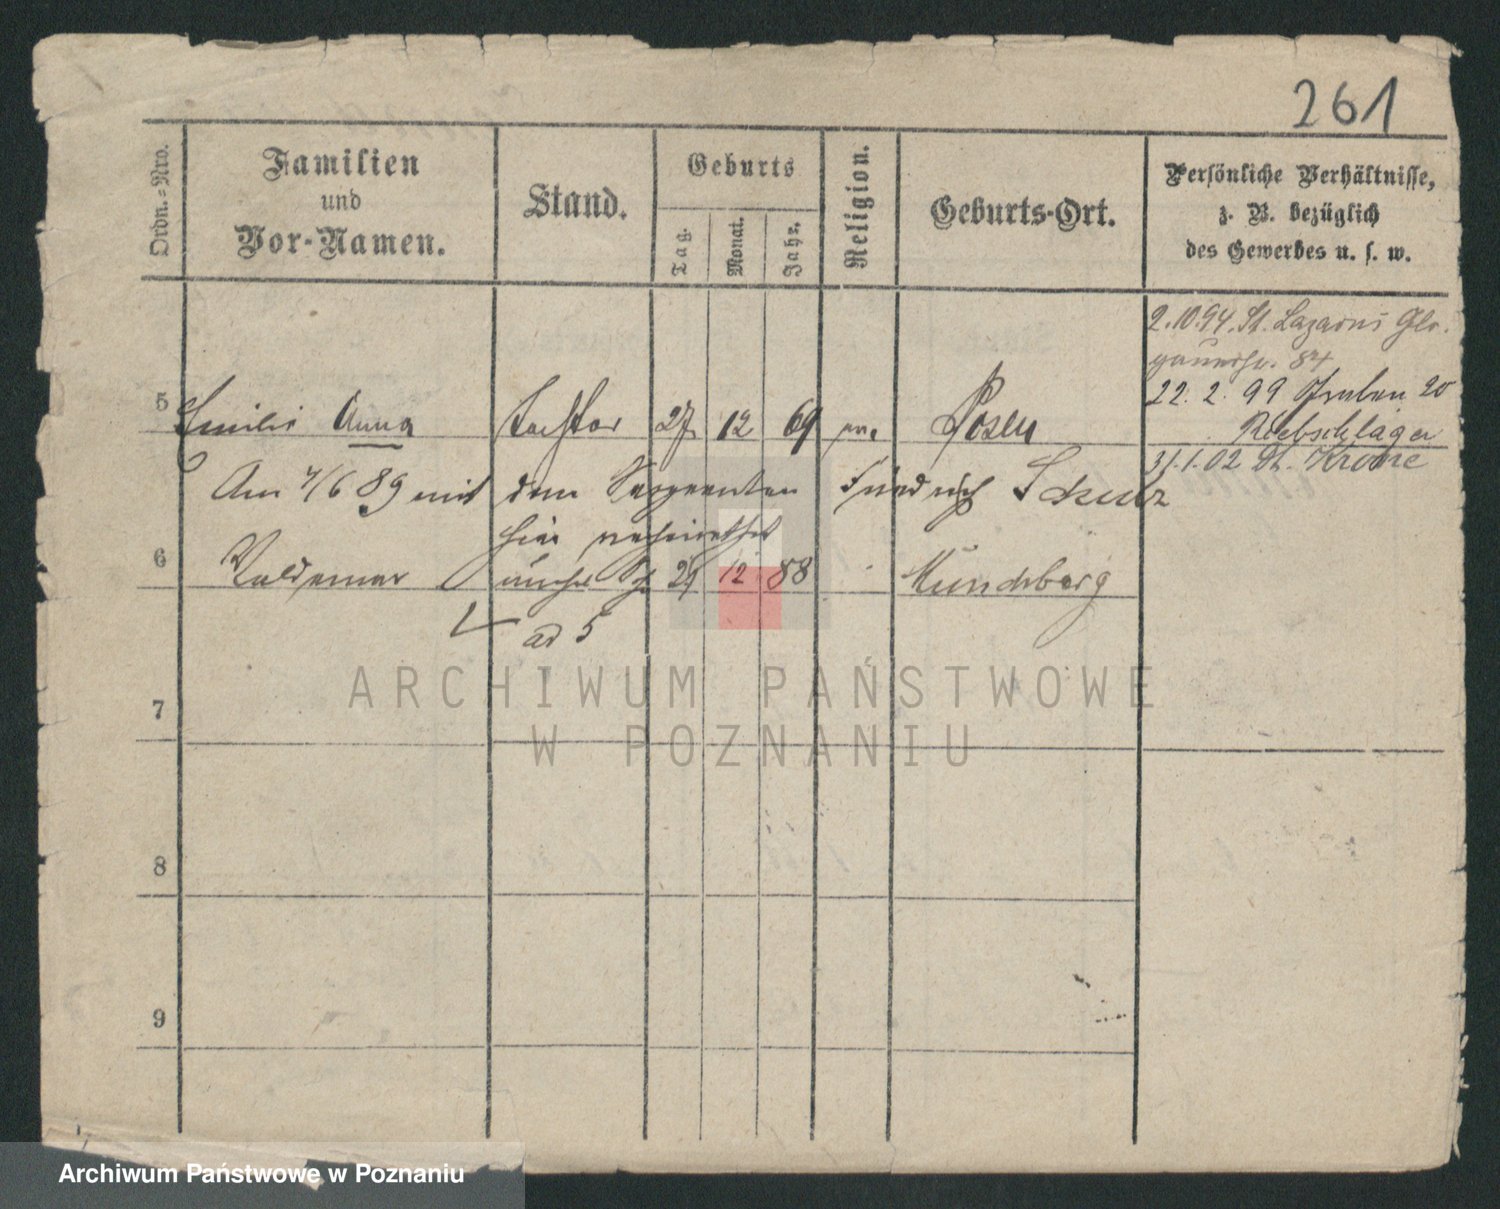 261
Ordn.-Nro.
Familien
und
Vor-Namen.
Stand.
Geburts
Tag.
Monat.
Jahr.
Religion.
Geburts-Ort.
Persönliche Verhältnisse,
z. B. bezüglich
des Gewerbes u. s. w.
2.10.94. St. Lazarus Glo-
gauerstr. 84
22. 2. 99 Graben 20
Riebschläger
31.1.02 Dt. Krone
5 Emilie Anna Tochter 27 12 69 Posen
Am 4/6 89 mit dem Sergeanten Friedrich Schulz
hier verheirathet
6 Waldemar unehel. S. 29 12 88 Müncheberg
ad 5
7
8
9
ARCHIWUM PAŃSTWOWE
W POZNANIU
Archiwum Państwowe w Poznaniu